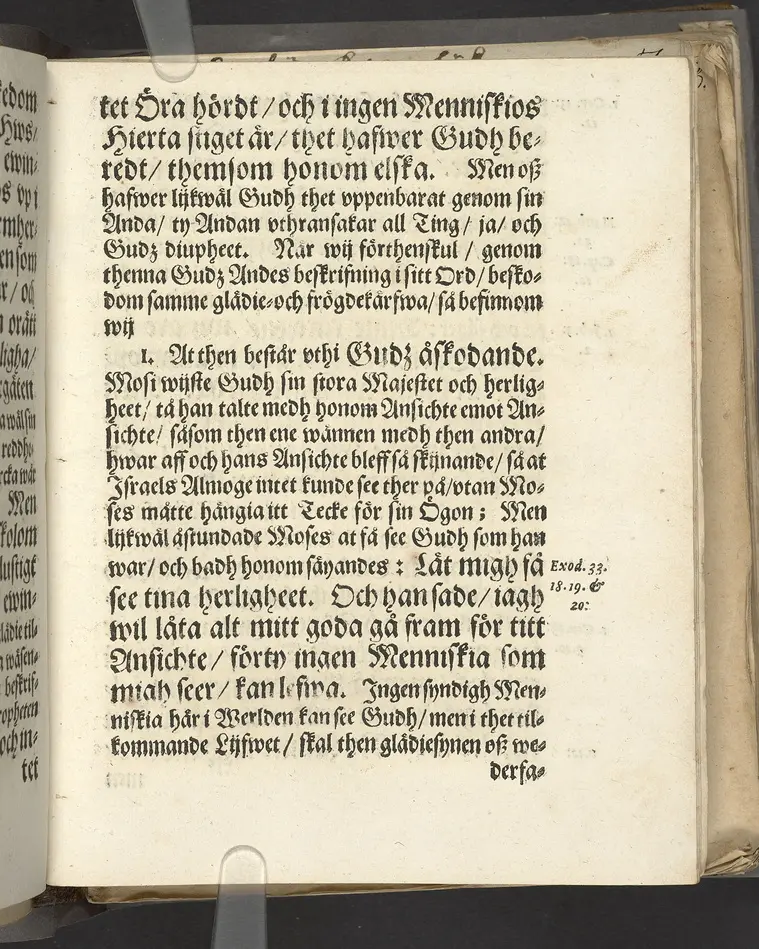 kedom
Hws/
ewin-
os vp i
rmher-
en som
ar/ och
n orätt
ligha/
rgäten
a wälsin
reddhe-
rcka wår
Men
skolom
lustigt
ewin-
lädie til-
a wäsen-
beskrif-
ropheten
och in-
tet
tet Öra hördt / och i ingen Menniskios
Hierta stiget är/ thet hafwer Gudh be-
redt/ them som honom elska. Men oß
hafwer lijkwäl Gudh thet vppenbarat genom sin
Anda/ ty Andan vthransakar all Ting/ ja/ och
Gudz diupheet. När wij förthenskul / genom
thenna Gudz Andes beskrifning i sitt Ord/ besko-
dom samme glädie-och frögdekärfwa/ så befinnom
wij
1. At then består vthi Gudz åskodande.
Mosi wijste Gudh sin stora Majestet och herlig-
heet/ tå han talte medh honom Ansichte emot An-
sichte/ såsom then ene wännen medh then andra/
hwar aff och hans Ansichte bleff så skijnande/ så at
Israels Almoge intet kunde see ther på/ vtan Mo-
ses måtte hängia itt Tecke för sin Ögon; Men
lijkwäl åstundade Moses at få see Gudh som han
war/ och badh honom säyandes: Låt migh få
see tina herligheet. Och han sade/ iagh
wil låta alt mitt goda gå fram för titt
Ansichte/ förty ingen Menniskia som
migh seer/ kan lefwa. Ingen syndigh Men-
niskia här i Werlden kan see Gudh/ men i thet til-
kommande Lijfwet/ skal then glädiesynen oß we-
derfa-
Exod. 33.
18. 19. &
20: